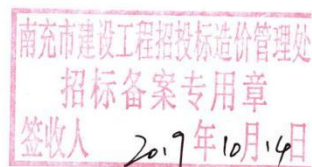 南充市建设工程招投标造价管理处
招标备案专用章
签收人 2019年10月14日